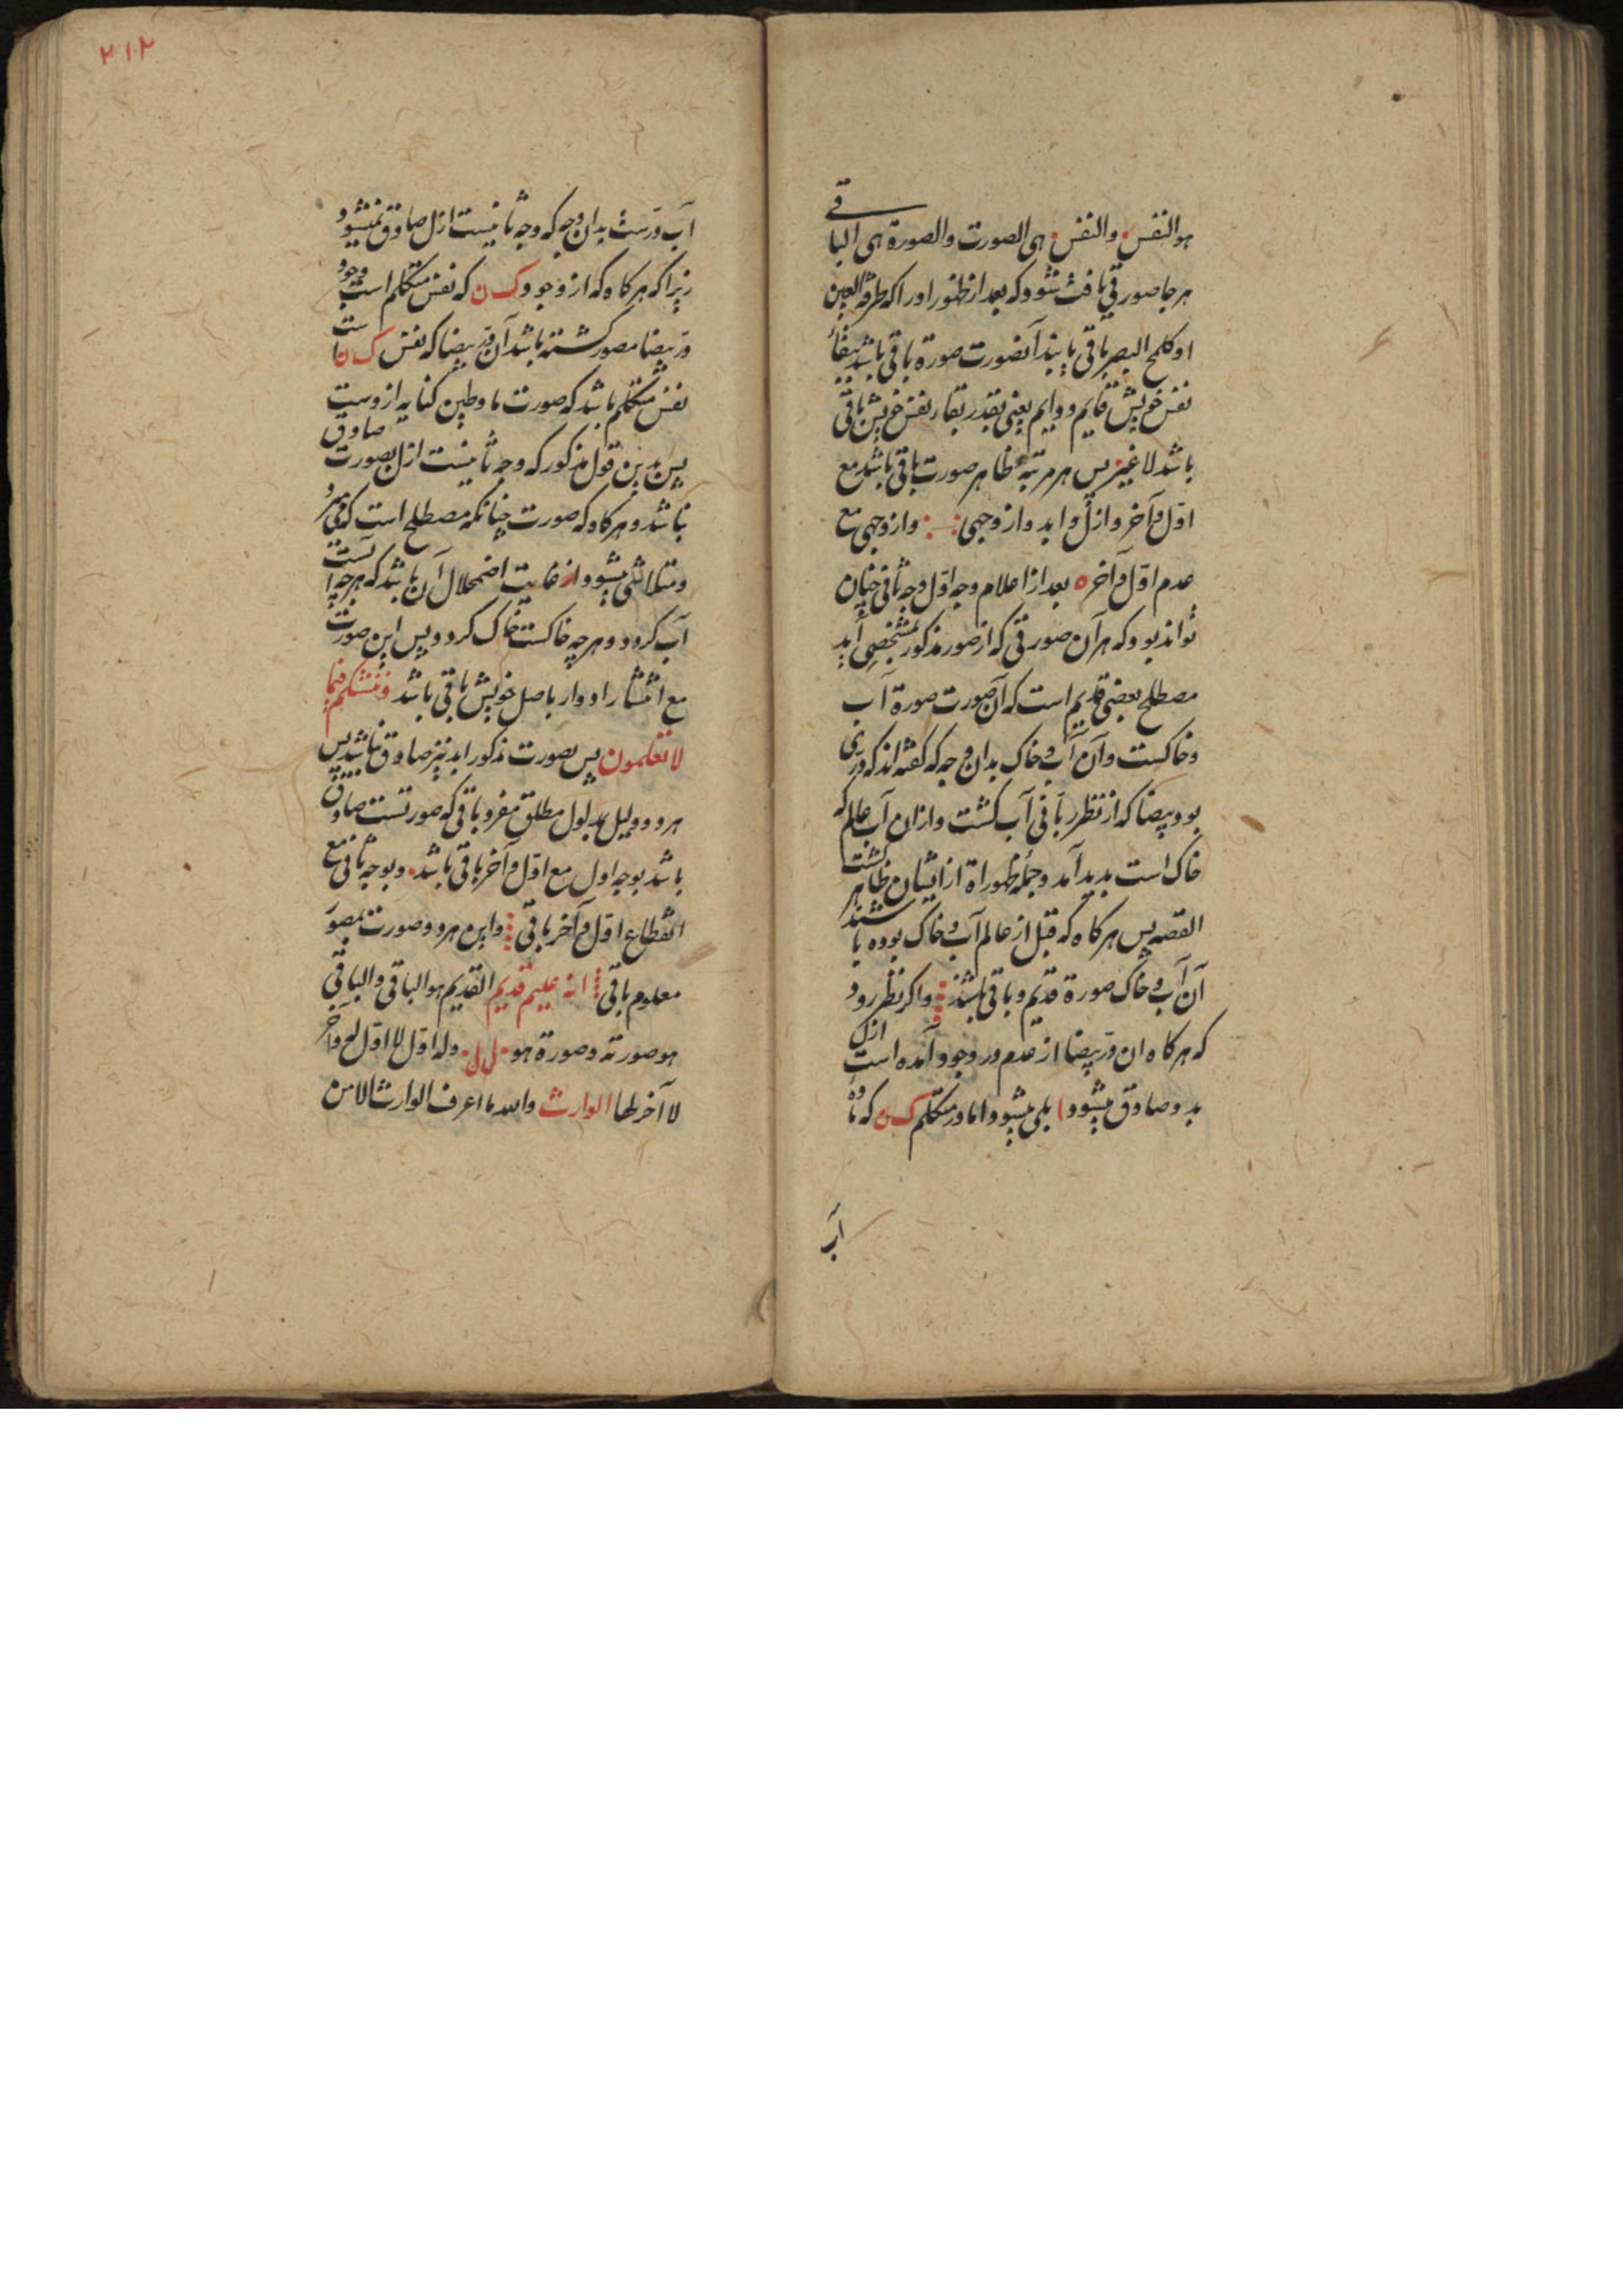 هو النفس والنفس هی الصورت والصورة هی الباقی
هر جا صورتی یافت شود که بعد از ظهور او را که طرفة العین
او کلمح البصر باقی یابند آنصورت صورة باقی باشد ببقاء
نفس خویش قایم و دایم یعنی بقدر بقاء نفس خویش باقی
باشد لا غیر پس هر مرتبه ظاهر صورت باقی باشد مع
اول و آخر و ازل و ابد و از وجهی و از وجهی مع
عدم اول و آخر ه بعد از اعلام وجه اول وجه ثانی چنان
تواند بود که هر آن صورتی که از صور مذکور مشخص آید
مصطلح بعضی قدیم است که آن صورت صورة آب
و خاکست و آن آب و خاک بدان وجه که گفته اند که دری
بود بیضا که از نظر ربانی آب گشت و از آن آب عالم که
خاک است پدید آمد و جمله ظهوراة از ایشان ظاهر گشت
القصه پس هر کاه که قبل از عالم آب و خاک بوده باشند
آن آب و خاک صورة قدیم و باقی باشند و اگر نظر رود
که هر کاه ان در بیضا از عدم در وجود آمده است ازل
بدو صادق میشود بلی میشود اما در متکلم ک ن که مادهٔ
آب
۲۱۲
آب درست بدان وجه که وجه ثانیست ازل صادق نمیشود
زیرا که هر کاه که از وجود ک ن که نفس متکلم است وجود
در بیضا مصور گشته باشد آن در بیضا که نفس ک ن است
نفس متکلم باشد که صورت ما و طین کنایه ازوست
پس بدین قول مذکور که وجه ثانیست ازل بصورت صادق
نباشد و هر کاه که صورت چنانکه مصطلح است که می میرد
و متلاشی میشود از غایت اضمحلال آن باشد که هر چه آبست
آب گردد و هر چه خاکست خاک گردد پس این صورت
مع انتشار ادوار باصل خویش باقی باشد و ننشئکم فیما
لا تعلمون پس بصورت مذکور ابد نیز صادق نباشد پس
هر دو دلیل بمدلول مطلق مفرد باقی که صورتست صادق
باشد بوجه اول مع اول و آخر باقی باشد و بوجه ثانی مع
انقطاع اول و آخر باقی و این هر دو صورت بصور
معلوم باقی انه علیم قدیم القدیم هو الباقی والباقی
هو صورته وصورة هو ل ل وله اول لا اول له وآخر
لا آخر لها الوارث والله ما اعرف الوارث الا من